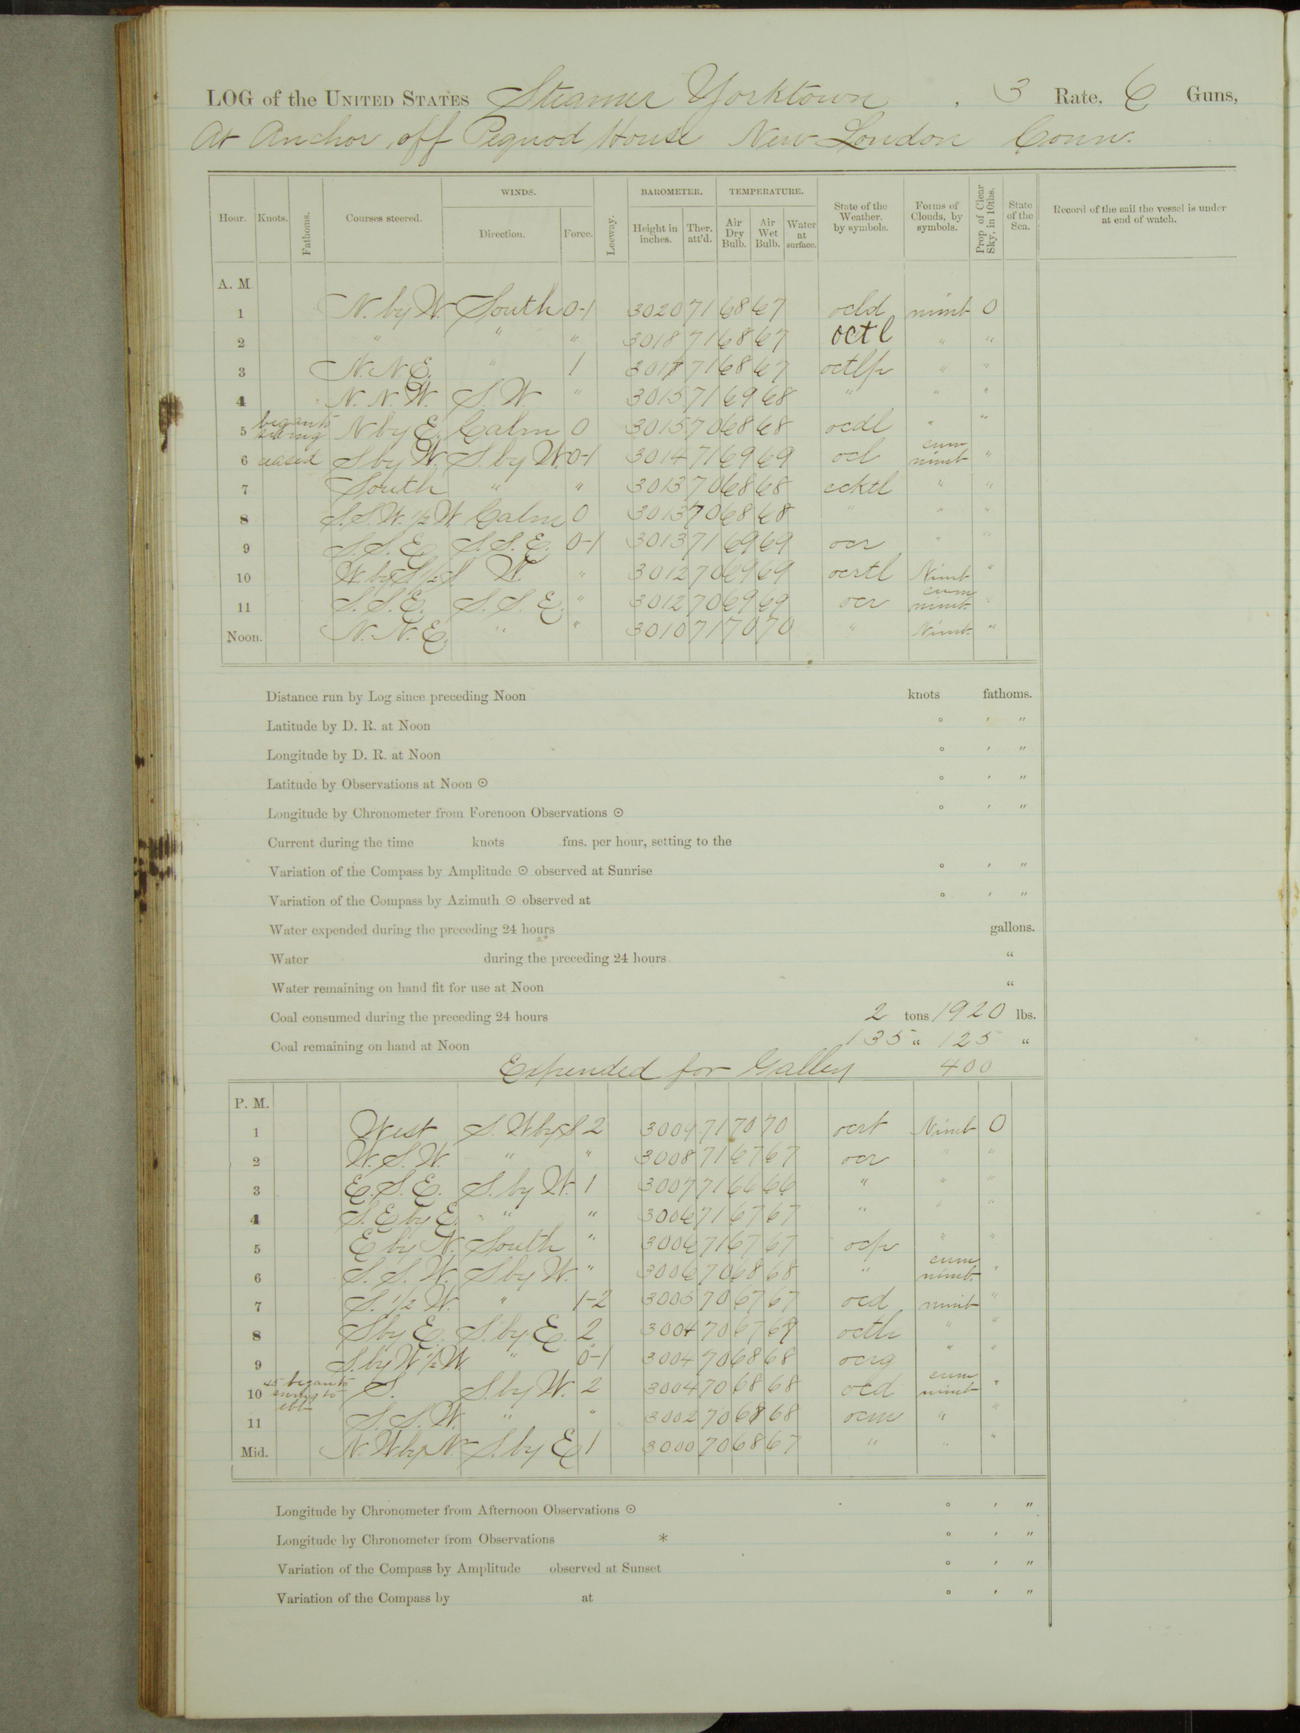 LOG of the UNITED STATES Steamer Yorktown, 3 Rate, 6 Guns,
At Anchor off Pequod House New London Conn.
WINDS. BAROMETER. TEMPERATURE.
Hour. Knots. Fathoms. Courses steered. Direction. Force. Leeway. Height in inches. Ther. att'd. Air Dry Bulb. Air Wet Bulb. Water at surface. State of the Weather, by symbols. Forms of Clouds, by symbols. Prop. of Clear Sky, in 10ths. State of the Sea. Record of the sail the vessel is under at end of watch.
A. M.
1 N. by W. South 0-1 3020 71 68 67 ocld nimb 0
2 " " " 3018 71 68 67 octl " "
3 N.N.E. " 1 3018 71 68 67 octlp " "
4 N.N.W. S.W. " 3015 71 69 68 " " "
5 began to N by E. Calm 0 3015 70 68 68 ocdl " "
6 ceased S by W. S. by W. 0-1 3014 71 69 69 ocl cum nimb "
7 South " " 3013 70 68 68 ccktl " "
8 S.S.W. 1/2 W Calm 0 3013 70 68 68 " " "
9 S.S.E. S.S.E. 0-1 3013 71 69 69 ocr " "
10 W by S 1/2 S W. " 3012 70 69 69 ocrtl Nimb "
11 S.S.E. S.S.E. " 3012 70 69 69 ocr cum nimb "
Noon. N.N.E. " " 3010 71 70 70 " Nimb "
Distance run by Log since preceding Noon knots fathoms.
Latitude by D. R. at Noon ° ′ ″
Longitude by D. R. at Noon ° ′ ″
Latitude by Observations at Noon ☉ ° ′ ″
Longitude by Chronometer from Forenoon Observations ☉ ° ′ ″
Current during the time knots fms. per hour, setting to the
Variation of the Compass by Amplitude ☉ observed at Sunrise ° ′ ″
Variation of the Compass by Azimuth ☉ observed at ° ′ ″
Water expended during the preceding 24 hours gallons.
Water during the preceding 24 hours "
Water remaining on hand fit for use at Noon "
Coal consumed during the preceding 24 hours 2 tons 1920 lbs.
Coal remaining on hand at Noon 135 " 125 "
Expended for Galley 400
P. M.
1 West S.W by S 2 3009 71 70 70 ocrt Nimb 0
2 W.S.W. " " 3008 71 67 67 ocr " "
3 E.S.E. S. by W. 1 3007 71 66 66 " " "
4 S.E by E. " " 3006 71 67 67 " " "
5 E by N. South " 3006 71 67 67 ocp " "
6 S.S.W. S by W. " 3006 70 68 68 " cum nimb "
7 S. 1/2 W. " 1-2 3005 70 67 67 ocd nimb "
8 S by E. S. by E. 2 3004 70 67 69 " "
9 S. by W 1/2 W. " 0-1 3004 70 68 68 ocrg " "
10 began to swing to ebb S. S. by W. 2 3004 70 68 68 ocd cum nimb "
11 S.S.W. " " 3002 70 68 68 ocm " "
Mid. N.W by N S. by E 1 3000 70 68 67 " " "
Longitude by Chronometer from Afternoon Observations ☉ ° ′ ″
Longitude by Chronometer from Observations * ° ′ ″
Variation of the Compass by Amplitude observed at Sunset ° ′ ″
Variation of the Compass by at ° ′ ″